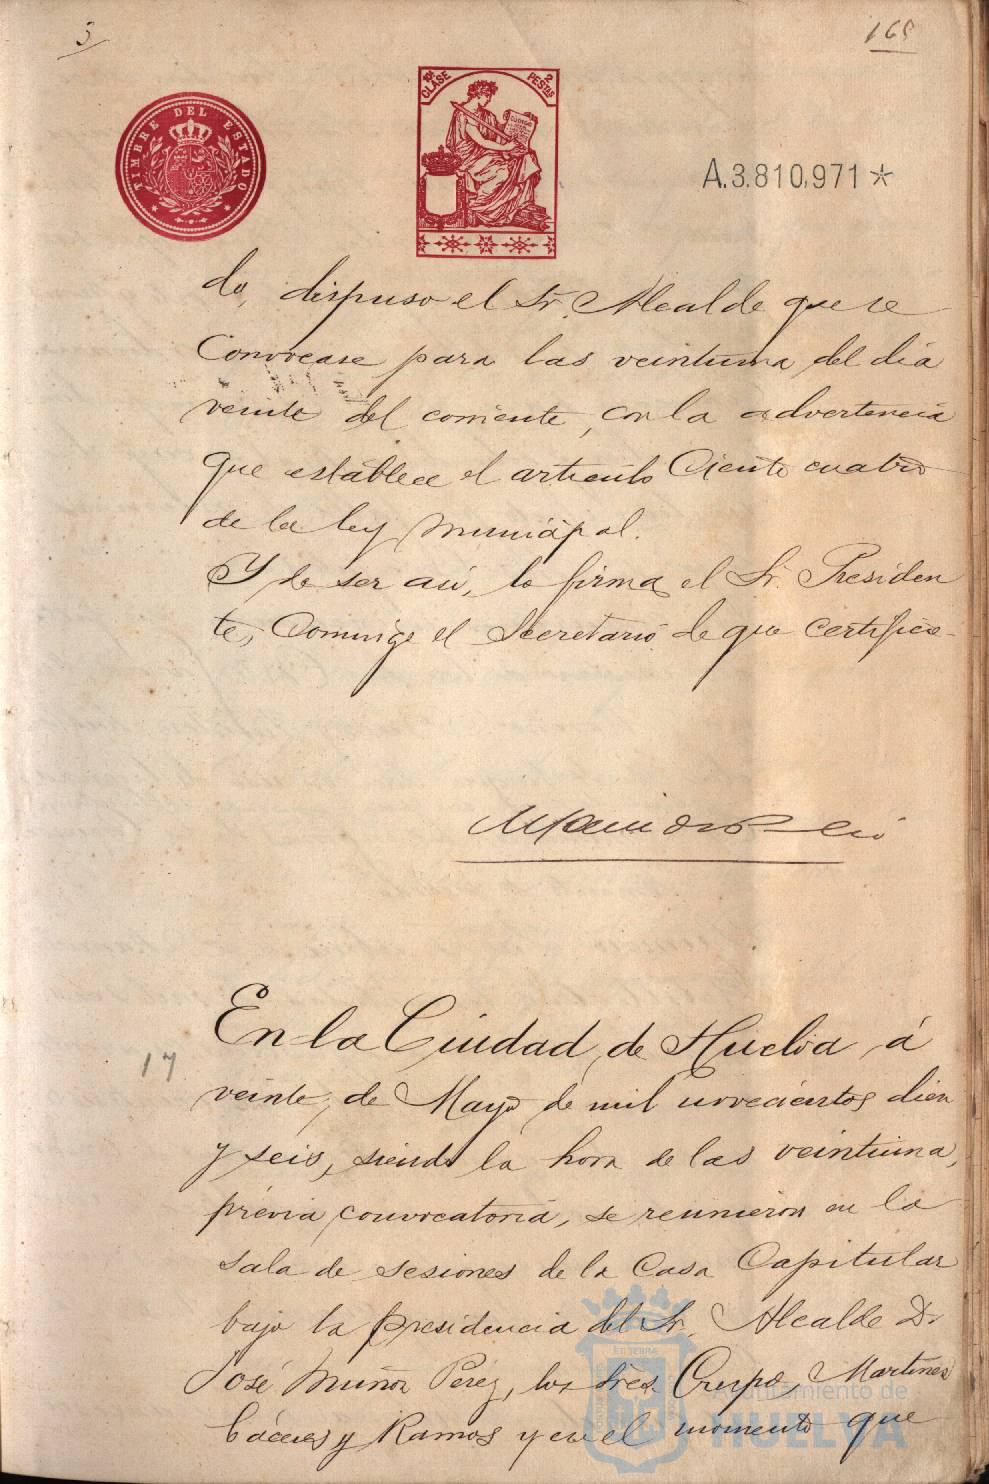 3
165
TIMBRE DEL ESTADO
10ª CLASE
2 PESTAS
A.3.810,971 *
do, dispuso el Sr. Alcalde que se
Convocase para las veintiuna del dia
veinte del corriente, con la advertencia
que establece el articulo Ciento cuatro
de la ley Municipal.
Y de ser así, lo firma el Sr. Presiden
te, Conmigo el Secretario de que certifico-
17
En la Ciudad de Huelva á
veinte, de Mayo de mil novecientos diez
y seis, siendo la hora de las veintiuna,
prévia convocatoria, se reunieron en la
sala de sesiones de la Casa Capitular
bajo la presidencia del Sr. Alcalde Dn
José Muñoz Perez, los Sres. Crespo, Martinez
Cáceres y Ramos y en el momento que
Ayuntamiento de
HUELVA